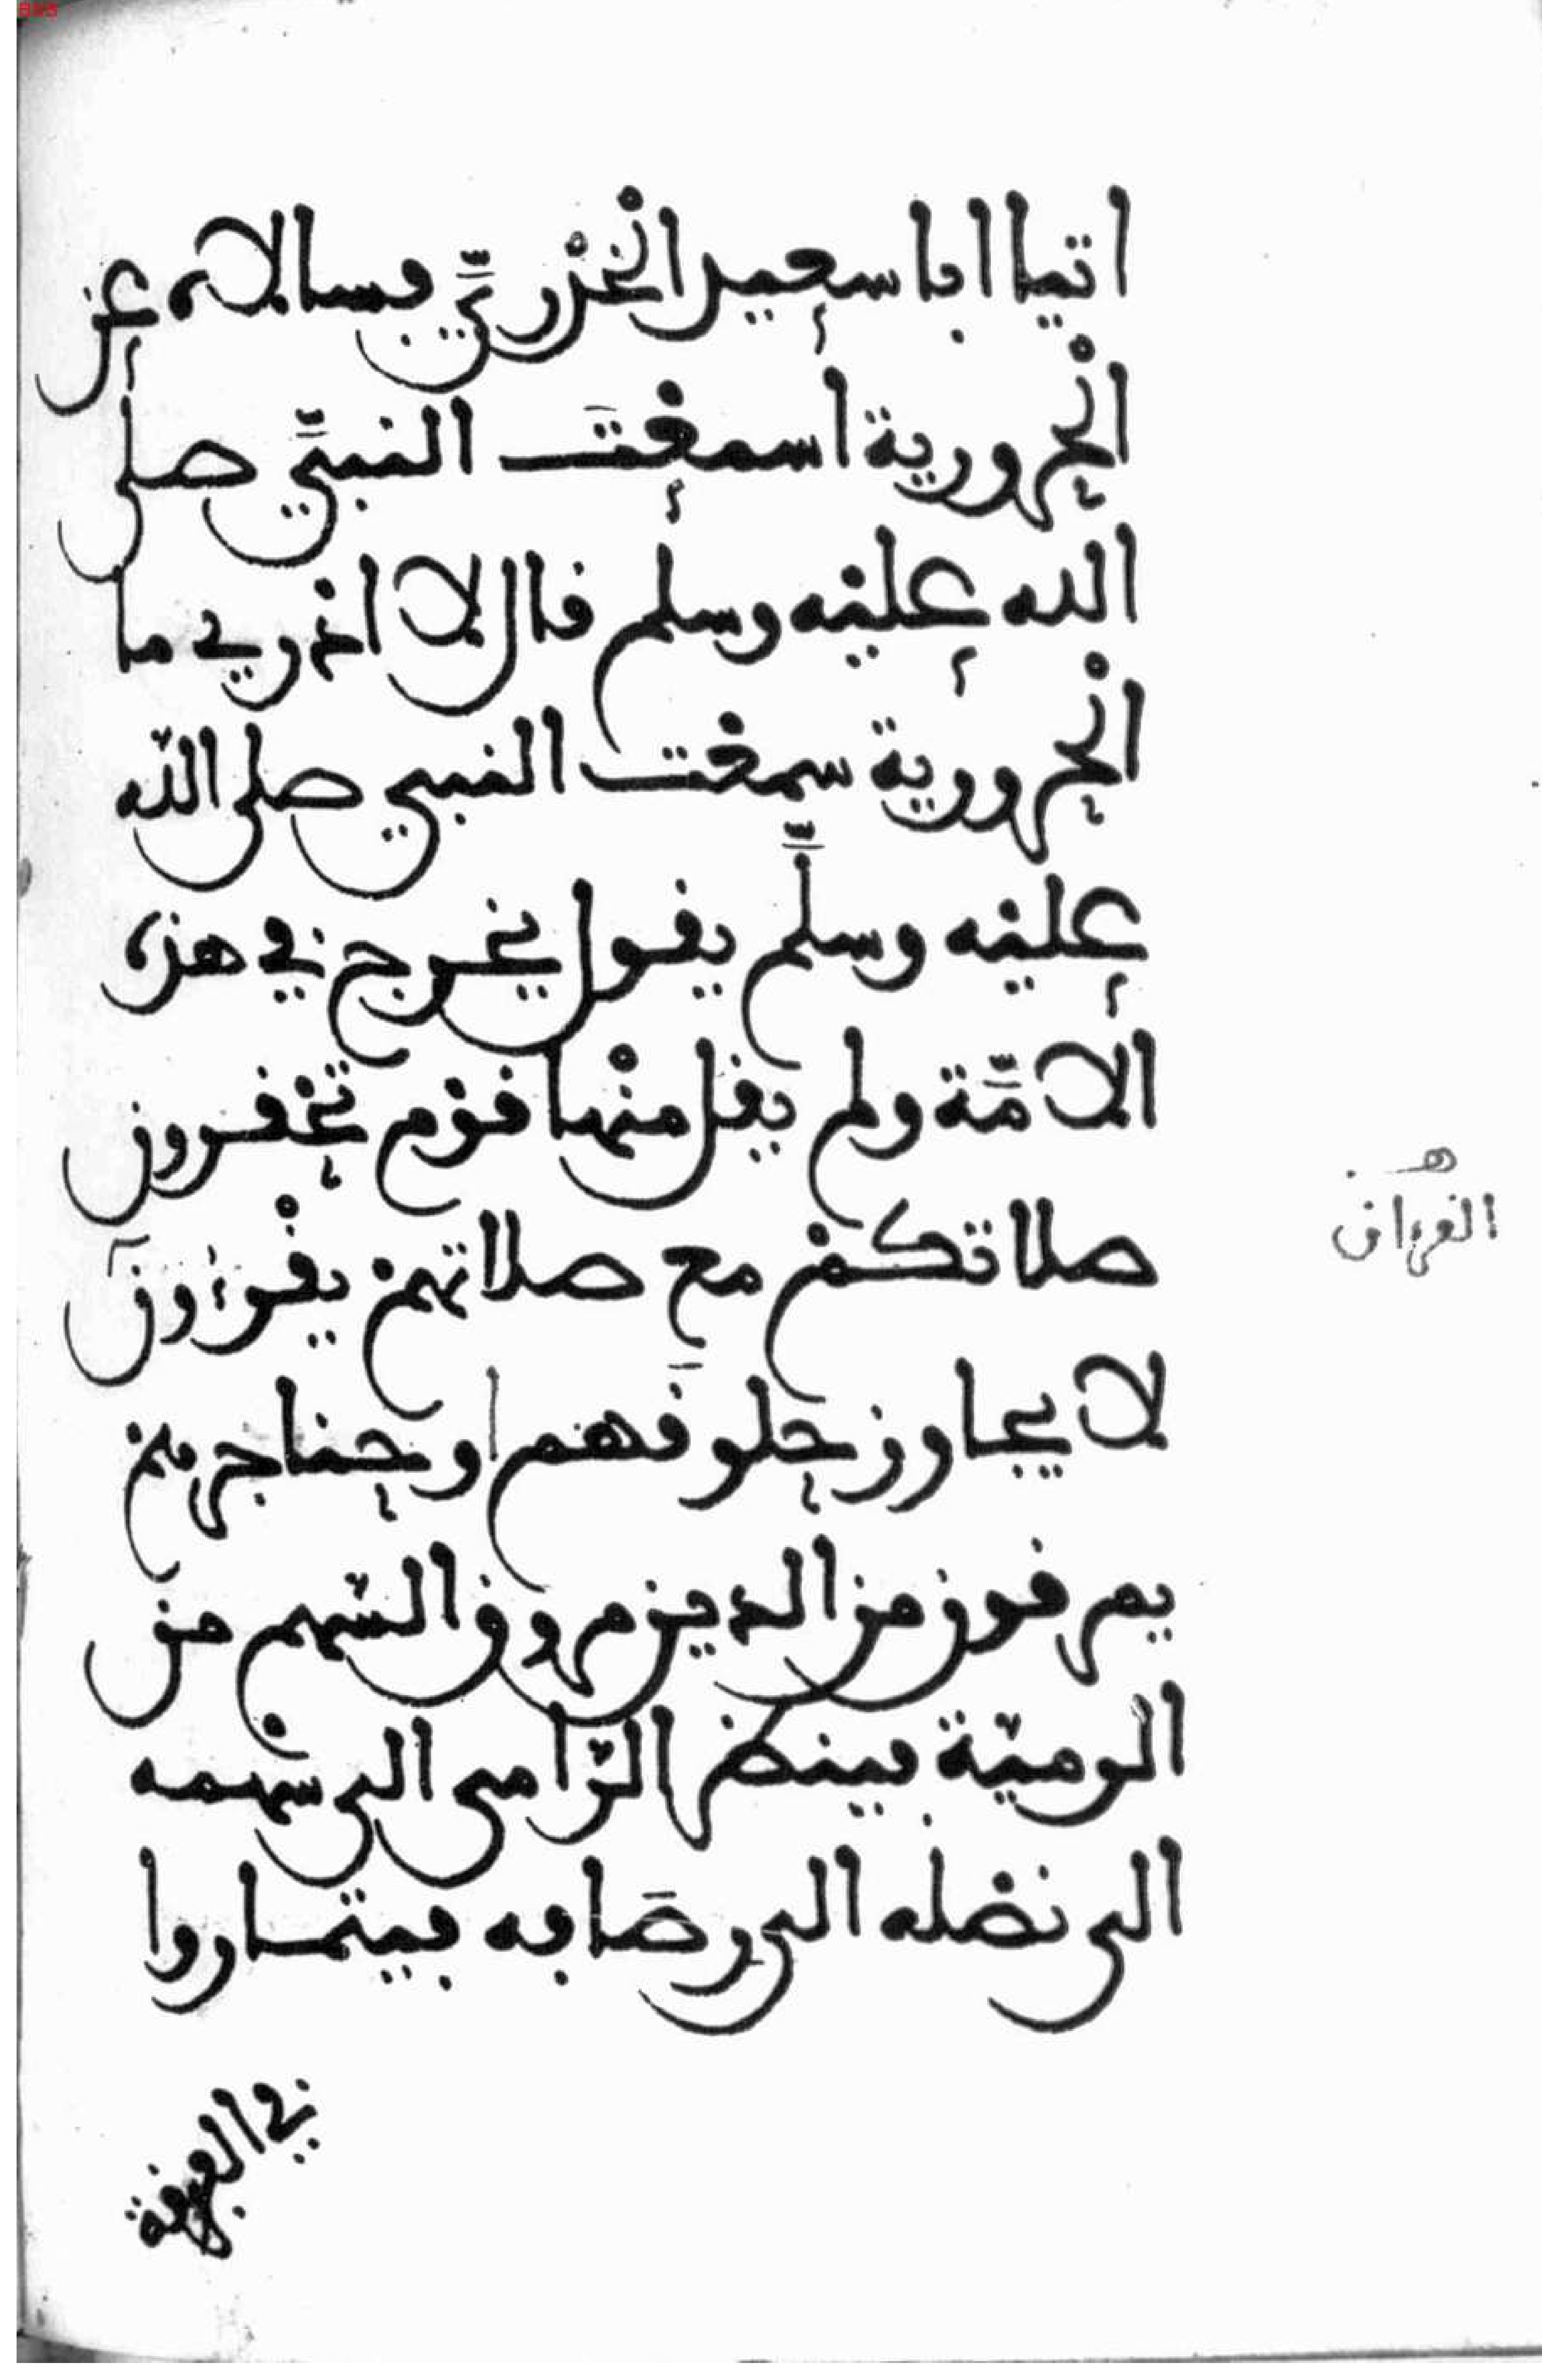 اتيا ابا سعيد الخدريّ فسالاه عن
الحرورية أسمعت النبيّ صلى
الله عليه وسلم قال لا ادري ما
الحرورية سمعت النبي صلى الله
عليه وسلّم يقول يخرج في هذه
الامّة ولم يقل منها قوم تحقرون
صلاتكم مع صلاتهم يقرءون
القرءان
لا يجاوز حلوقهم او حناجرهم
يمرقون من الدين مروق السّهم من
الرميّة فينظر الرّامي الى سهمه
الى نصله الى رصافه فيتماروا
في الفرقة